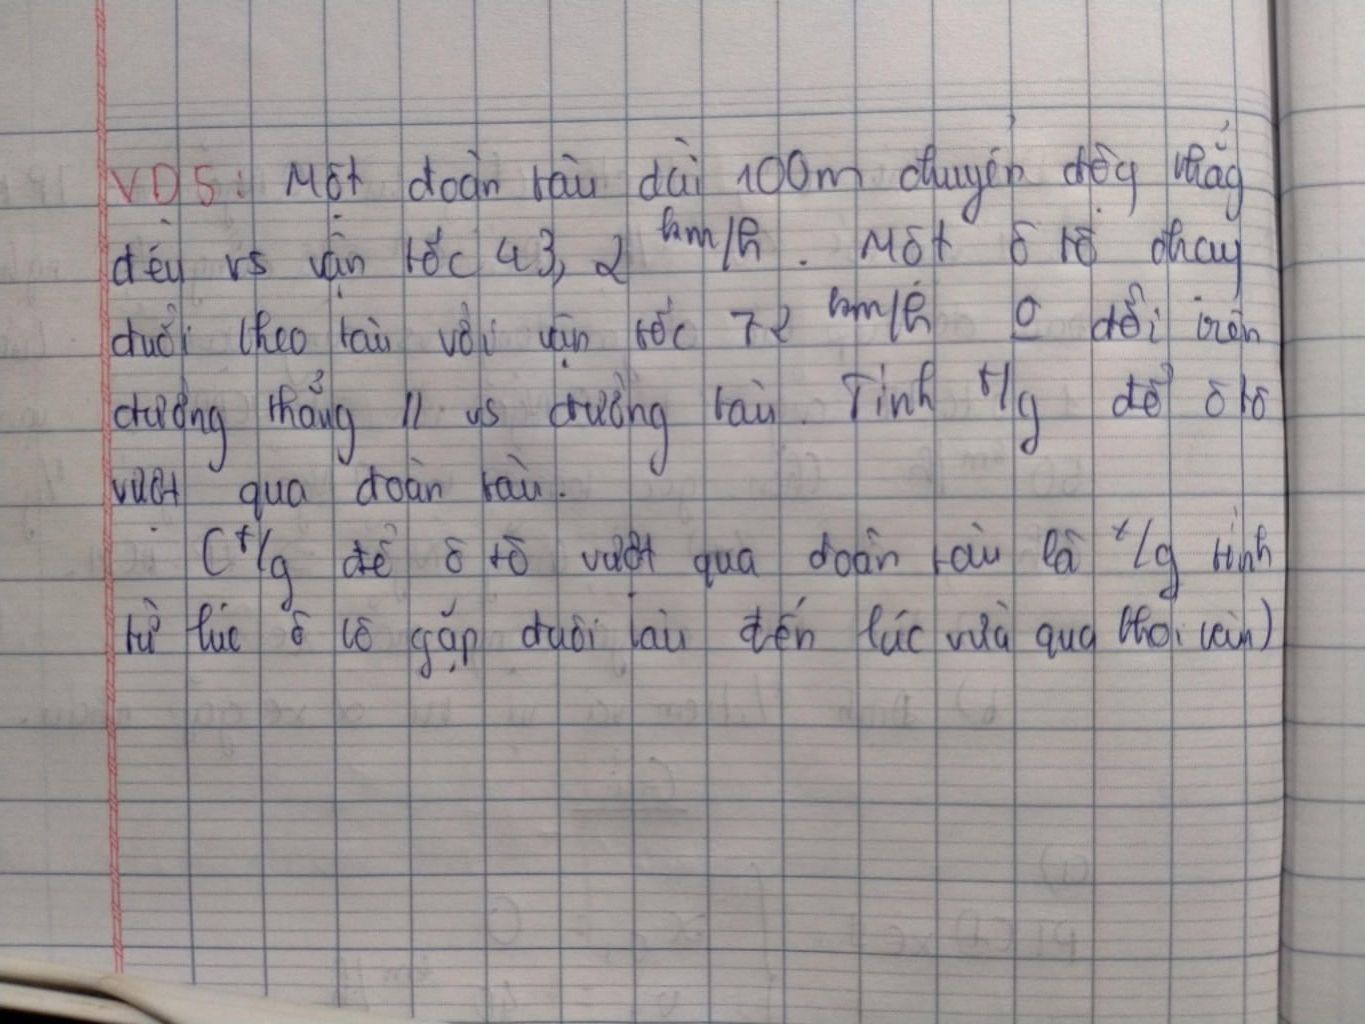 VD5: Một đoàn tàu dài 100m chuyển độg thẳg
đều vs vận tốc 43,2 km/h. Một ô tô chạy
đuổi theo tàu với vận tốc 72 km/h o đổi trên
đường thẳng // vs đường tàu. Tính t/g để ô tô
vượt qua đoàn tàu.
(t/g để ô tô vượt qua đoàn tàu là t/g tính
từ lúc ô tô gặp đuôi tàu đến lúc vừa qua khỏi tàu)